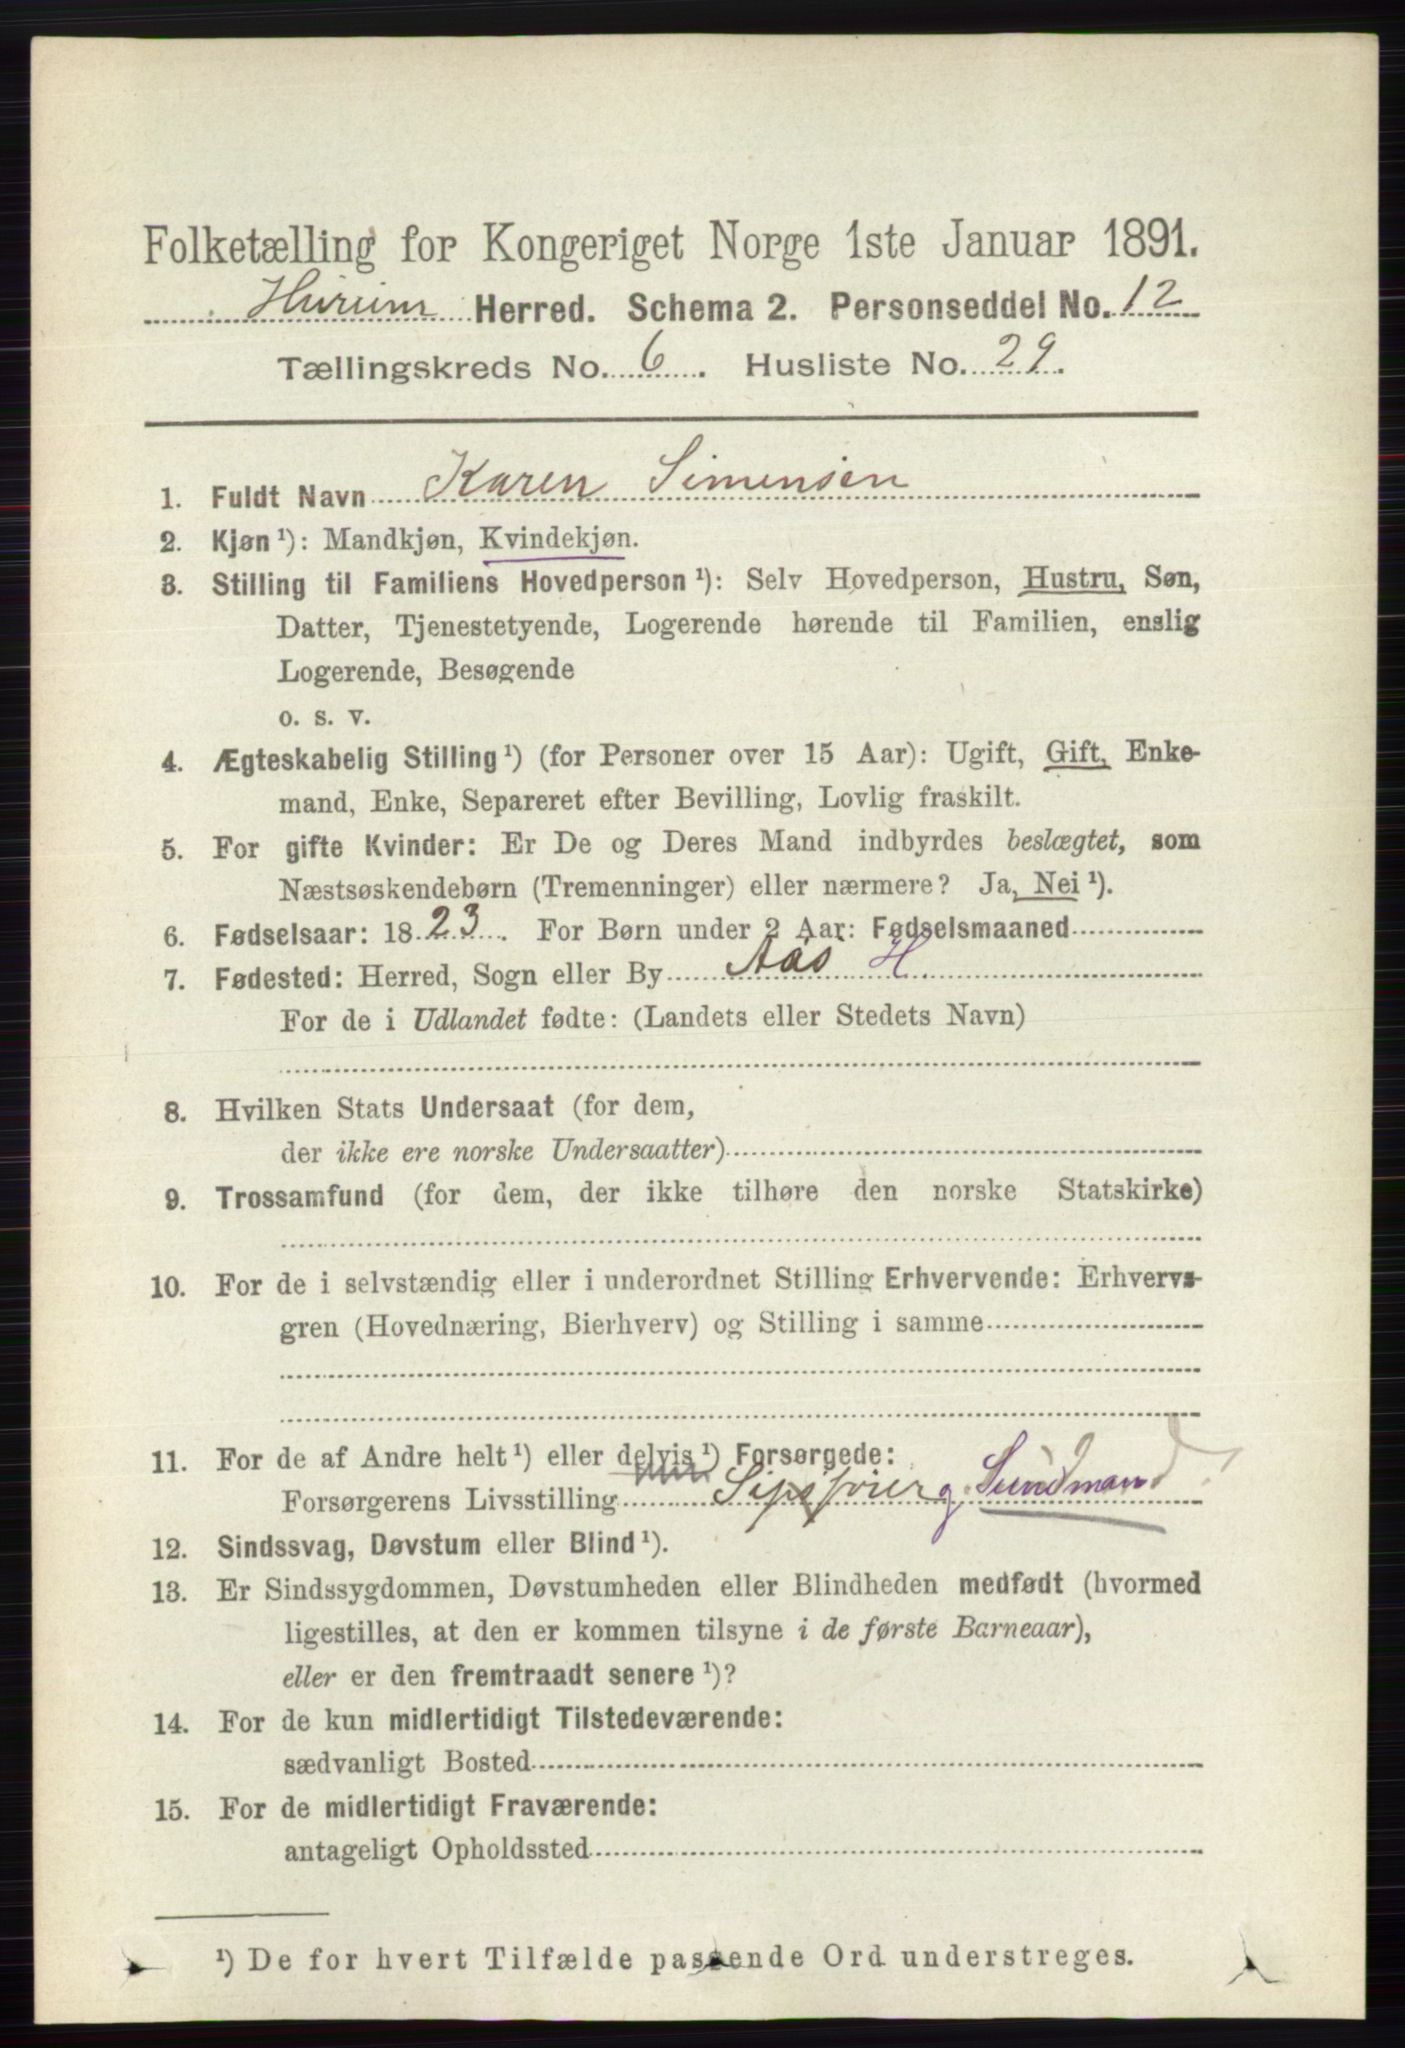 Folketælling for Kongeriget Norge 1ste Januar 1891.
Hurum Herred. Schema 2. Personseddel No. 12
Tællingskreds No. 6. Husliste No. 29.
1. Fuldt Navn Karen Simensen
2. Kjøn ¹): Mandkjøn, Kvindekjøn.
3. Stilling til Familiens Hovedperson ¹): Selv Hovedperson, Hustru, Søn,
Datter, Tjenestetyende, Logerende hørende til Familien, enslig
Logerende, Besøgende
o. s. v.
4. Ægteskabelig Stilling ¹) (for Personer over 15 Aar): Ugift, Gift, Enke-
mand, Enke, Separeret efter Bevilling, Lovlig fraskilt.
5. For gifte Kvinder: Er De og Deres Mand indbyrdes beslægtet, som
Næstsøskendebørn (Tremenninger) eller nærmere? Ja, Nei ¹).
6. Fødselsaar: 1823. For Børn under 2 Aar: Fødselsmaaned
7. Fødested: Herred, Sogn eller By Aas H.
For de i Udlandet fødte: (Landets eller Stedets Navn)
8. Hvilken Stats Undersaat (for dem,
der ikke ere norske Undersaatter)
9. Trossamfund (for dem, der ikke tilhøre den norske Statskirke)
10. For de i selvstændig eller i underordnet Stilling Erhvervende: Erhvervs-
gren (Hovednæring, Bierhverv) og Stilling i samme
11. For de af Andre helt ¹) eller delvis ¹) Forsørgede:
Forsørgerens Livsstilling
12. Sindssvag, Døvstum eller Blind ¹).
13. Er Sindssygdommen, Døvstumheden eller Blindheden medfødt (hvormed
ligestilles, at den er kommen tilsyne i de første Barneaar),
eller er den fremtraadt senere ¹)?
14. For de kun midlertidigt Tilstedeværende:
sædvanligt Bosted
15. For de midlertidigt Fraværende:
antageligt Opholdssted
¹) De for hvert Tilfælde passende Ord understreges.